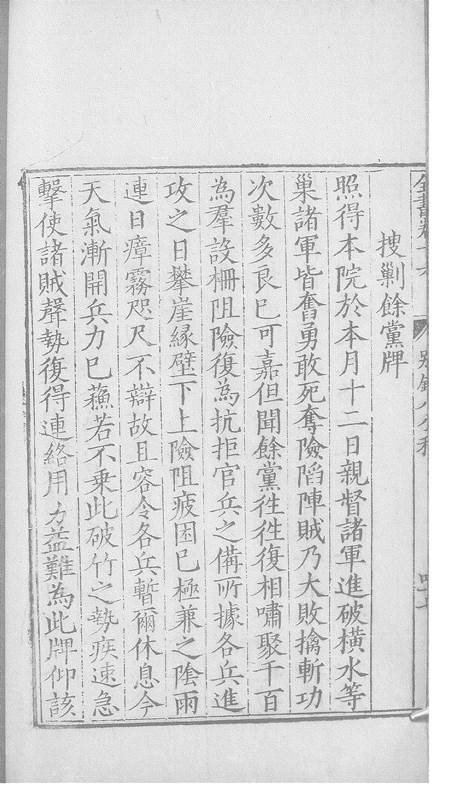 搜剿餘黨牌
照得本院於本月十二日親督諸軍進破橫水等
巢諸軍皆奮勇敢死奪險陷陣賊乃大敗擒斬功
次數多良已可嘉但聞餘黨徃徃復相嘯聚千百
為羣設柵阻險復為抗拒官兵之備所據各兵進
攻之日攀崖緣壁下上險阻疲困已極兼之陰雨
連日瘴霧咫尺不辯故且容令各兵暫爾休息今
天氣漸開兵力已蘓若不乗此破竹之勢疾速急
擊使諸賊聲勢復得連絡用力益難為此牌仰該